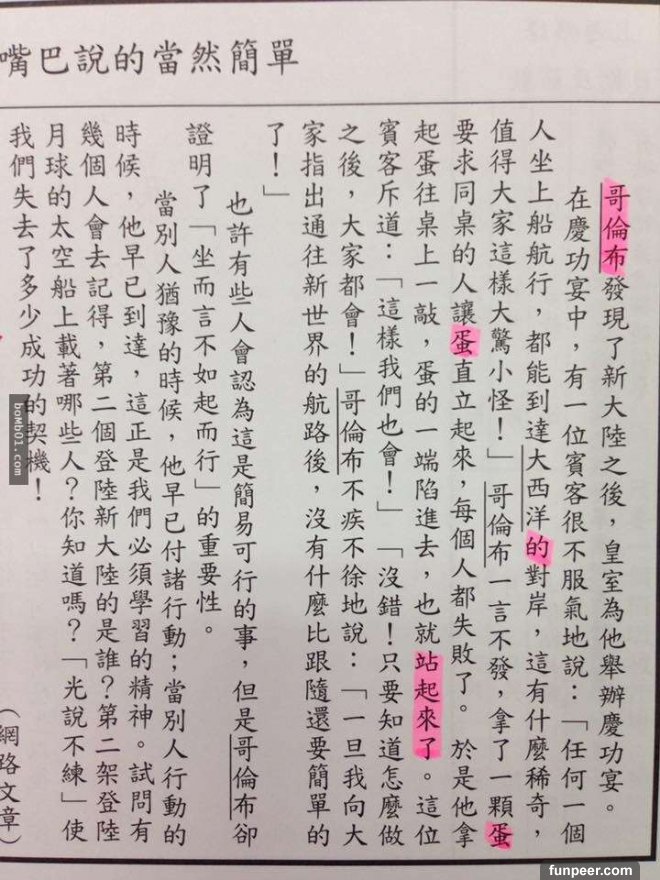 嘴巴說的當然簡單
哥倫布發現了新大陸之後，皇室為他舉辦慶功宴。
在慶功宴中，有一位賓客很不服氣地說：「任何一個
人坐上船航行，都能到達大西洋的對岸，這有什麼稀奇，
值得大家這樣大驚小怪！」哥倫布一言不發，拿了一顆蛋
要求同桌的人讓蛋直立起來，每個人都失敗了。於是他拿
起蛋往桌上一敲，蛋的一端陷進去，也就站起來了。這位
賓客斥道：「這樣我們也會！」「沒錯！只要知道怎麼做
之後，大家都會！」哥倫布不疾不徐地說：「一旦我向大
家指出通往新世界的航路後，沒有什麼比跟隨還要簡單的
了！」
也許有些人會認為這是簡易可行的事，但是哥倫布卻
證明了「坐而言不如起而行」的重要性。
當別人猶豫的時候，他早已付諸行動；當別人行動的
時候，他早已到達，這正是我們必須學習的精神。試問有
幾個人會去記得，第二個登陸新大陸的是誰？第二架登陸
月球的太空船上載著哪些人？你知道嗎？「光說不練」使
我們失去了多少成功的契機！
（網路文章）
bomb01.com
funpeer.com